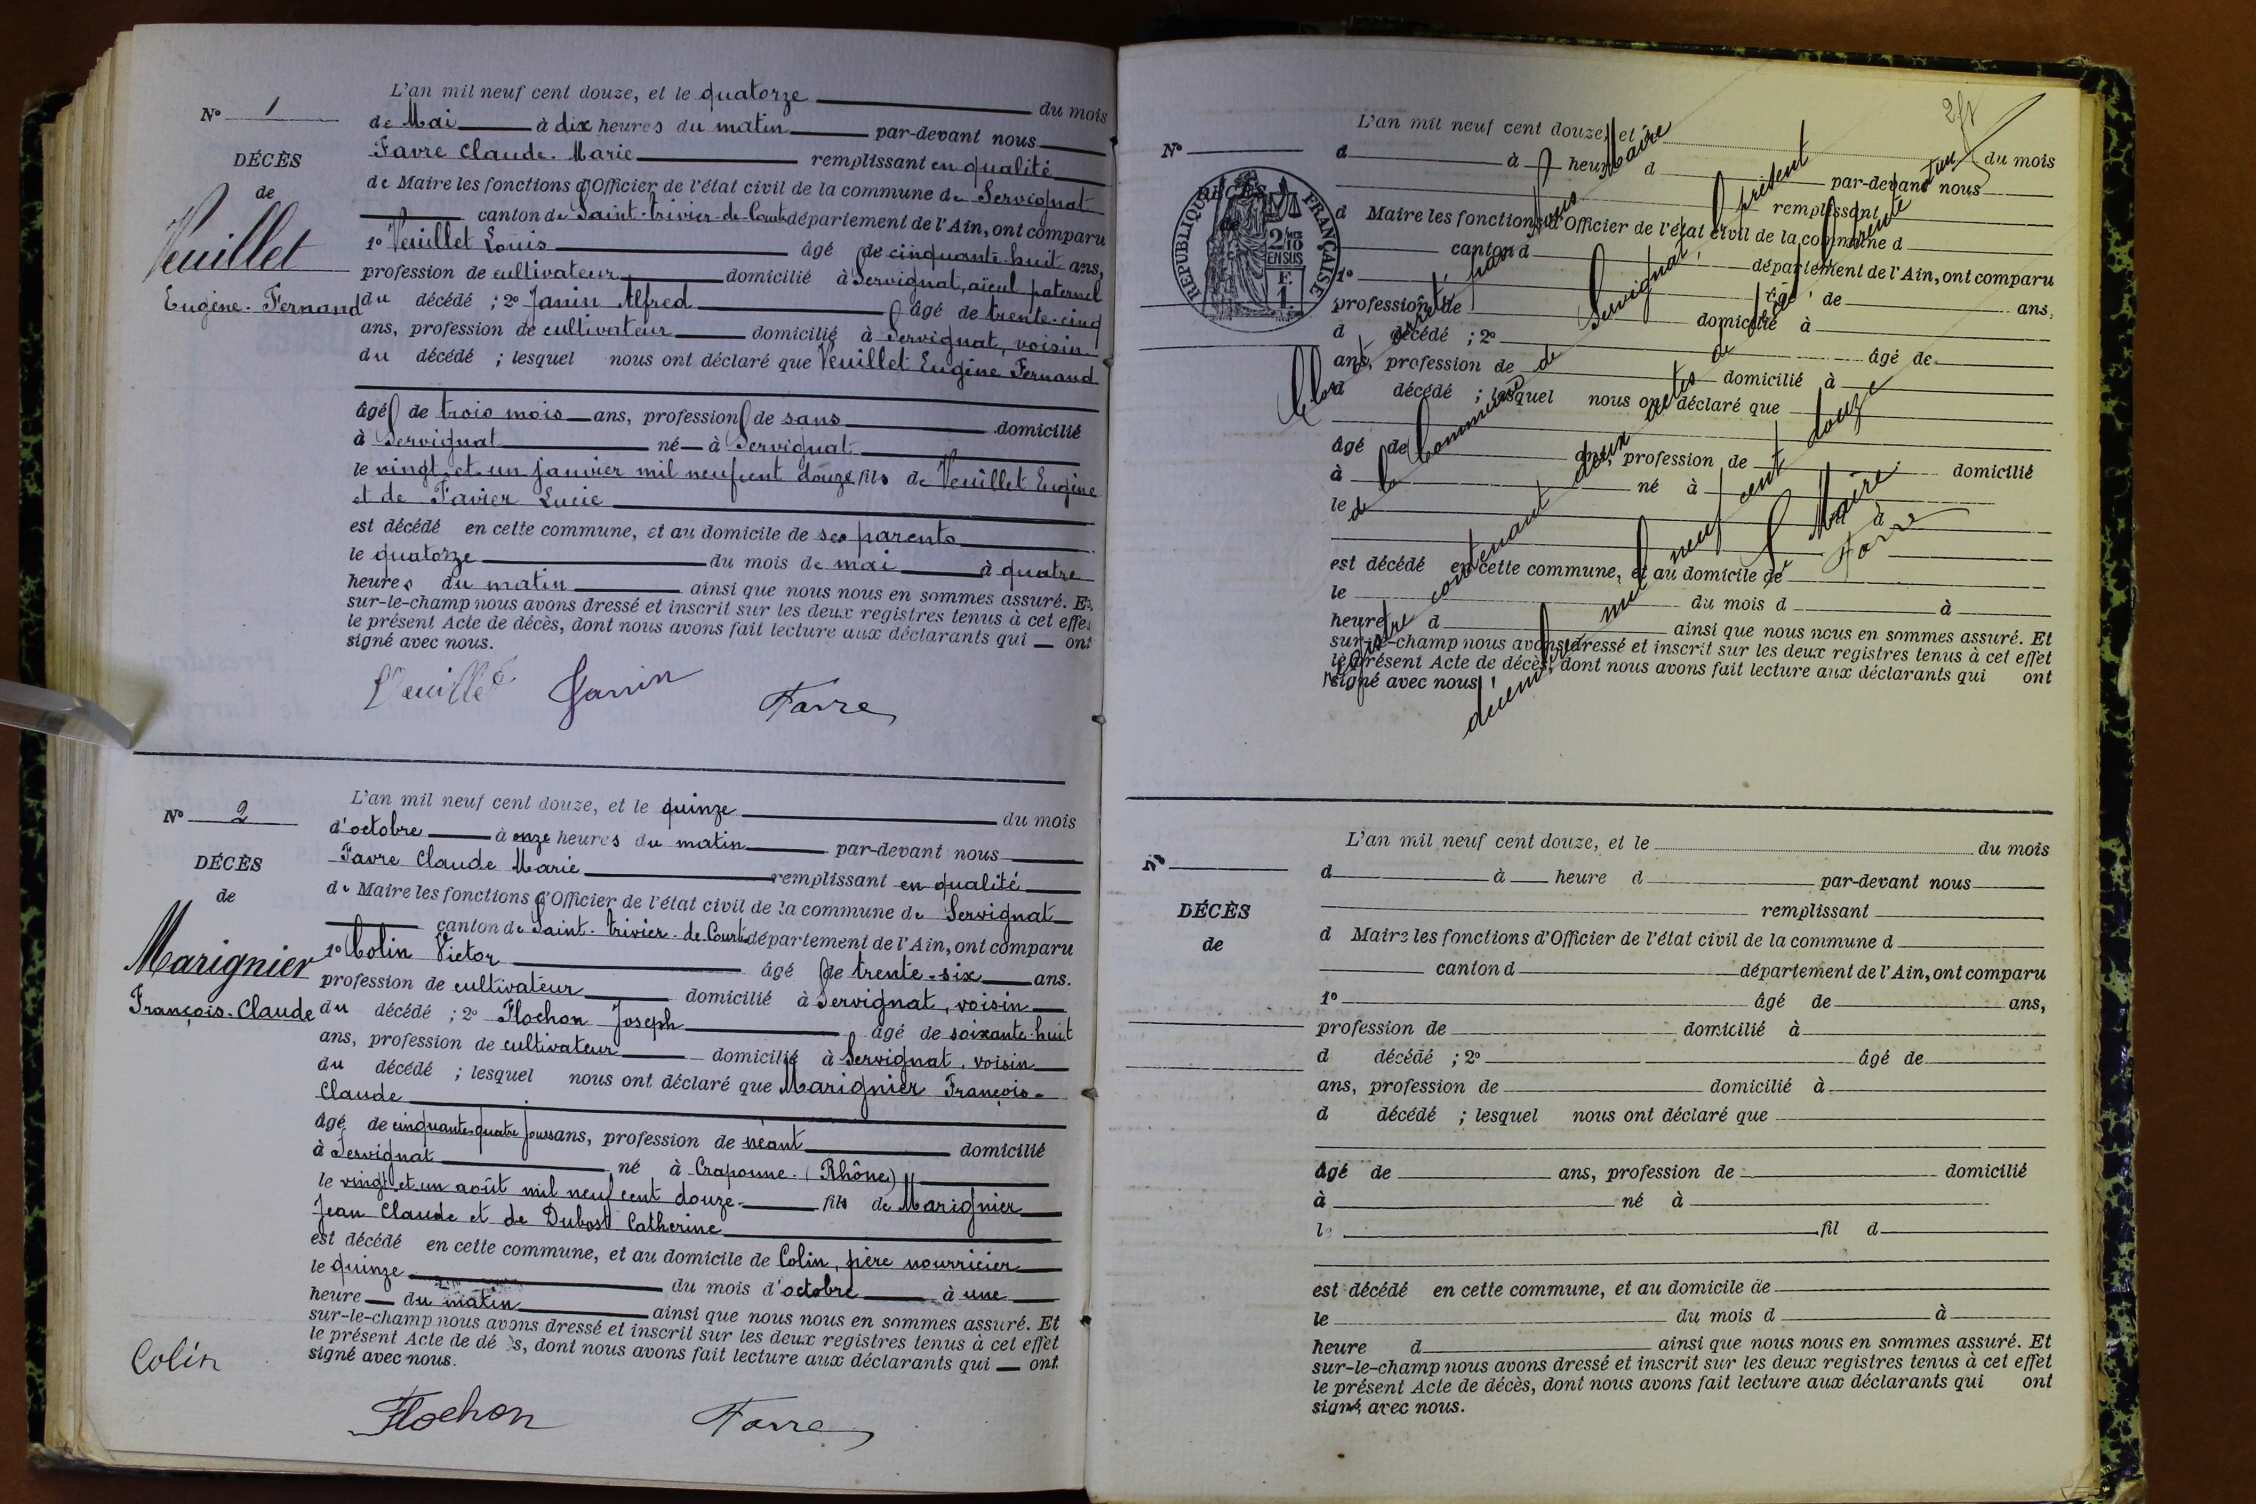 N° 1
DÉCÈS
de
Veuillet
Eugène-Fernand
L'an mil neuf cent douze, et le quatorze du mois
de Mai à dix heures du matin par-devant nous
Favre Claude-Marie remplissant en qualité
de Maire les fonctions d'Officier de l'état civil de la commune de Servignat
canton de Saint-Trivier-de-Courtes département de l'Ain, ont comparu
1° Veuillet Louis âgé de cinquante-huit ans,
profession de cultivateur domicilié à Servignat, aïeul paternel
du décédé ; 2° Janin Alfred âgé de trente-cinq
ans, profession de cultivateur domicilié à Servignat, voisin
du décédé ; lesquel nous ont déclaré que Veuillet Eugène Fernand
âgé de trois mois ans, profession de sans domicilié
à Servignat né à Servignat
le vingt-et-un janvier mil neuf cent douze fils de Veuillet Eugène
et de Favier Lucie
est décédé en cette commune, et au domicile de ses parents
le quatorze du mois de mai à quatre
heures du matin ainsi que nous nous en sommes assuré. Et
sur-le-champ nous avons dressé et inscrit sur les deux registres tenus à cet effet
le présent Acte de décès, dont nous avons fait lecture aux déclarants qui ont
signé avec nous.
Veuillet Janin Favre
N° 2
DÉCÈS
de
Marignier
François-Claude
L'an mil neuf cent douze, et le quinze du mois
d'octobre à onze heures du matin par-devant nous
Favre Claude Marie remplissant en qualité
de Maire les fonctions d'Officier de l'état civil de la commune de Servignat
canton de Saint-Trivier-de-Courtes département de l'Ain, ont comparu
1° Colin Victor âgé de trente-six ans.
profession de cultivateur domicilié à Servignat, voisin
du décédé ; 2° Flochon Joseph âgé de soixante-huit
ans, profession de cultivateur domicilié à Servignat, voisin
du décédé ; lesquel nous ont déclaré que Marignier François-
Claude
âgé de cinquante-quatre jours ans, profession de néant domicilié
à Servignat né à Craponne (Rhône)
le vingt-et-un août mil neuf cent douze fils de Marignier
Jean Claude et de Dubost Catherine
est décédé en cette commune, et au domicile de Colin, père nourricier
le quinze du mois d'octobre à une
heure du matin ainsi que nous nous en sommes assuré. Et
sur-le-champ nous avons dressé et inscrit sur les deux registres tenus à cet effet
le présent Acte de décès, dont nous avons fait lecture aux déclarants qui ont
signé avec nous.
Colin
Flochon Favre
N°
RÉPUBLIQUE FRANÇAISE
DÉCÈS
de
2/10
EN SUS
F.
1.
L'an mil neuf cent douze, et du mois
d à heure d par-devant nous
remplissant
d Maire les fonctions d'Officier de l'état civil de la commune d
canton d département de l'Ain, ont comparu
1° âgé de ans,
profession de domicilié à
d décédé ; 2° âgé de
ans, profession de domicilié à
d décédé ; lesquel nous ont déclaré que
âgé de ans, profession de domicilié
à né à
le d
est décédé en cette commune, et au domicile de
le du mois d à
heure d ainsi que nous nous en sommes assuré. Et
sur-le-champ nous avons dressé et inscrit sur les deux registres tenus à cet effet
le présent Acte de décès, dont nous avons fait lecture aux déclarants qui ont
signé avec nous.
Clos et arrêté par Nous Maire
de la Commune de Servignat, le présent
registre contenant deux actes de décès le trente et un
décembre mil neuf cent douze
Le Maire
Favre
N°
DÉCÈS
de
L'an mil neuf cent douze, et le du mois
d à heure d par-devant nous
remplissant
d Maire les fonctions d'Officier de l'état civil de la commune d
canton d département de l'Ain, ont comparu
1° âgé de ans,
profession de domicilié à
d décédé ; 2° âgé de
ans, profession de domicilié à
d décédé ; lesquel nous ont déclaré que
âgé de ans, profession de domicilié
à né à
le fil d
est décédé en cette commune, et au domicile de
le du mois d à
heure d ainsi que nous nous en sommes assuré. Et
sur-le-champ nous avons dressé et inscrit sur les deux registres tenus à cet effet
le présent Acte de décès, dont nous avons fait lecture aux déclarants qui ont
signé avec nous.